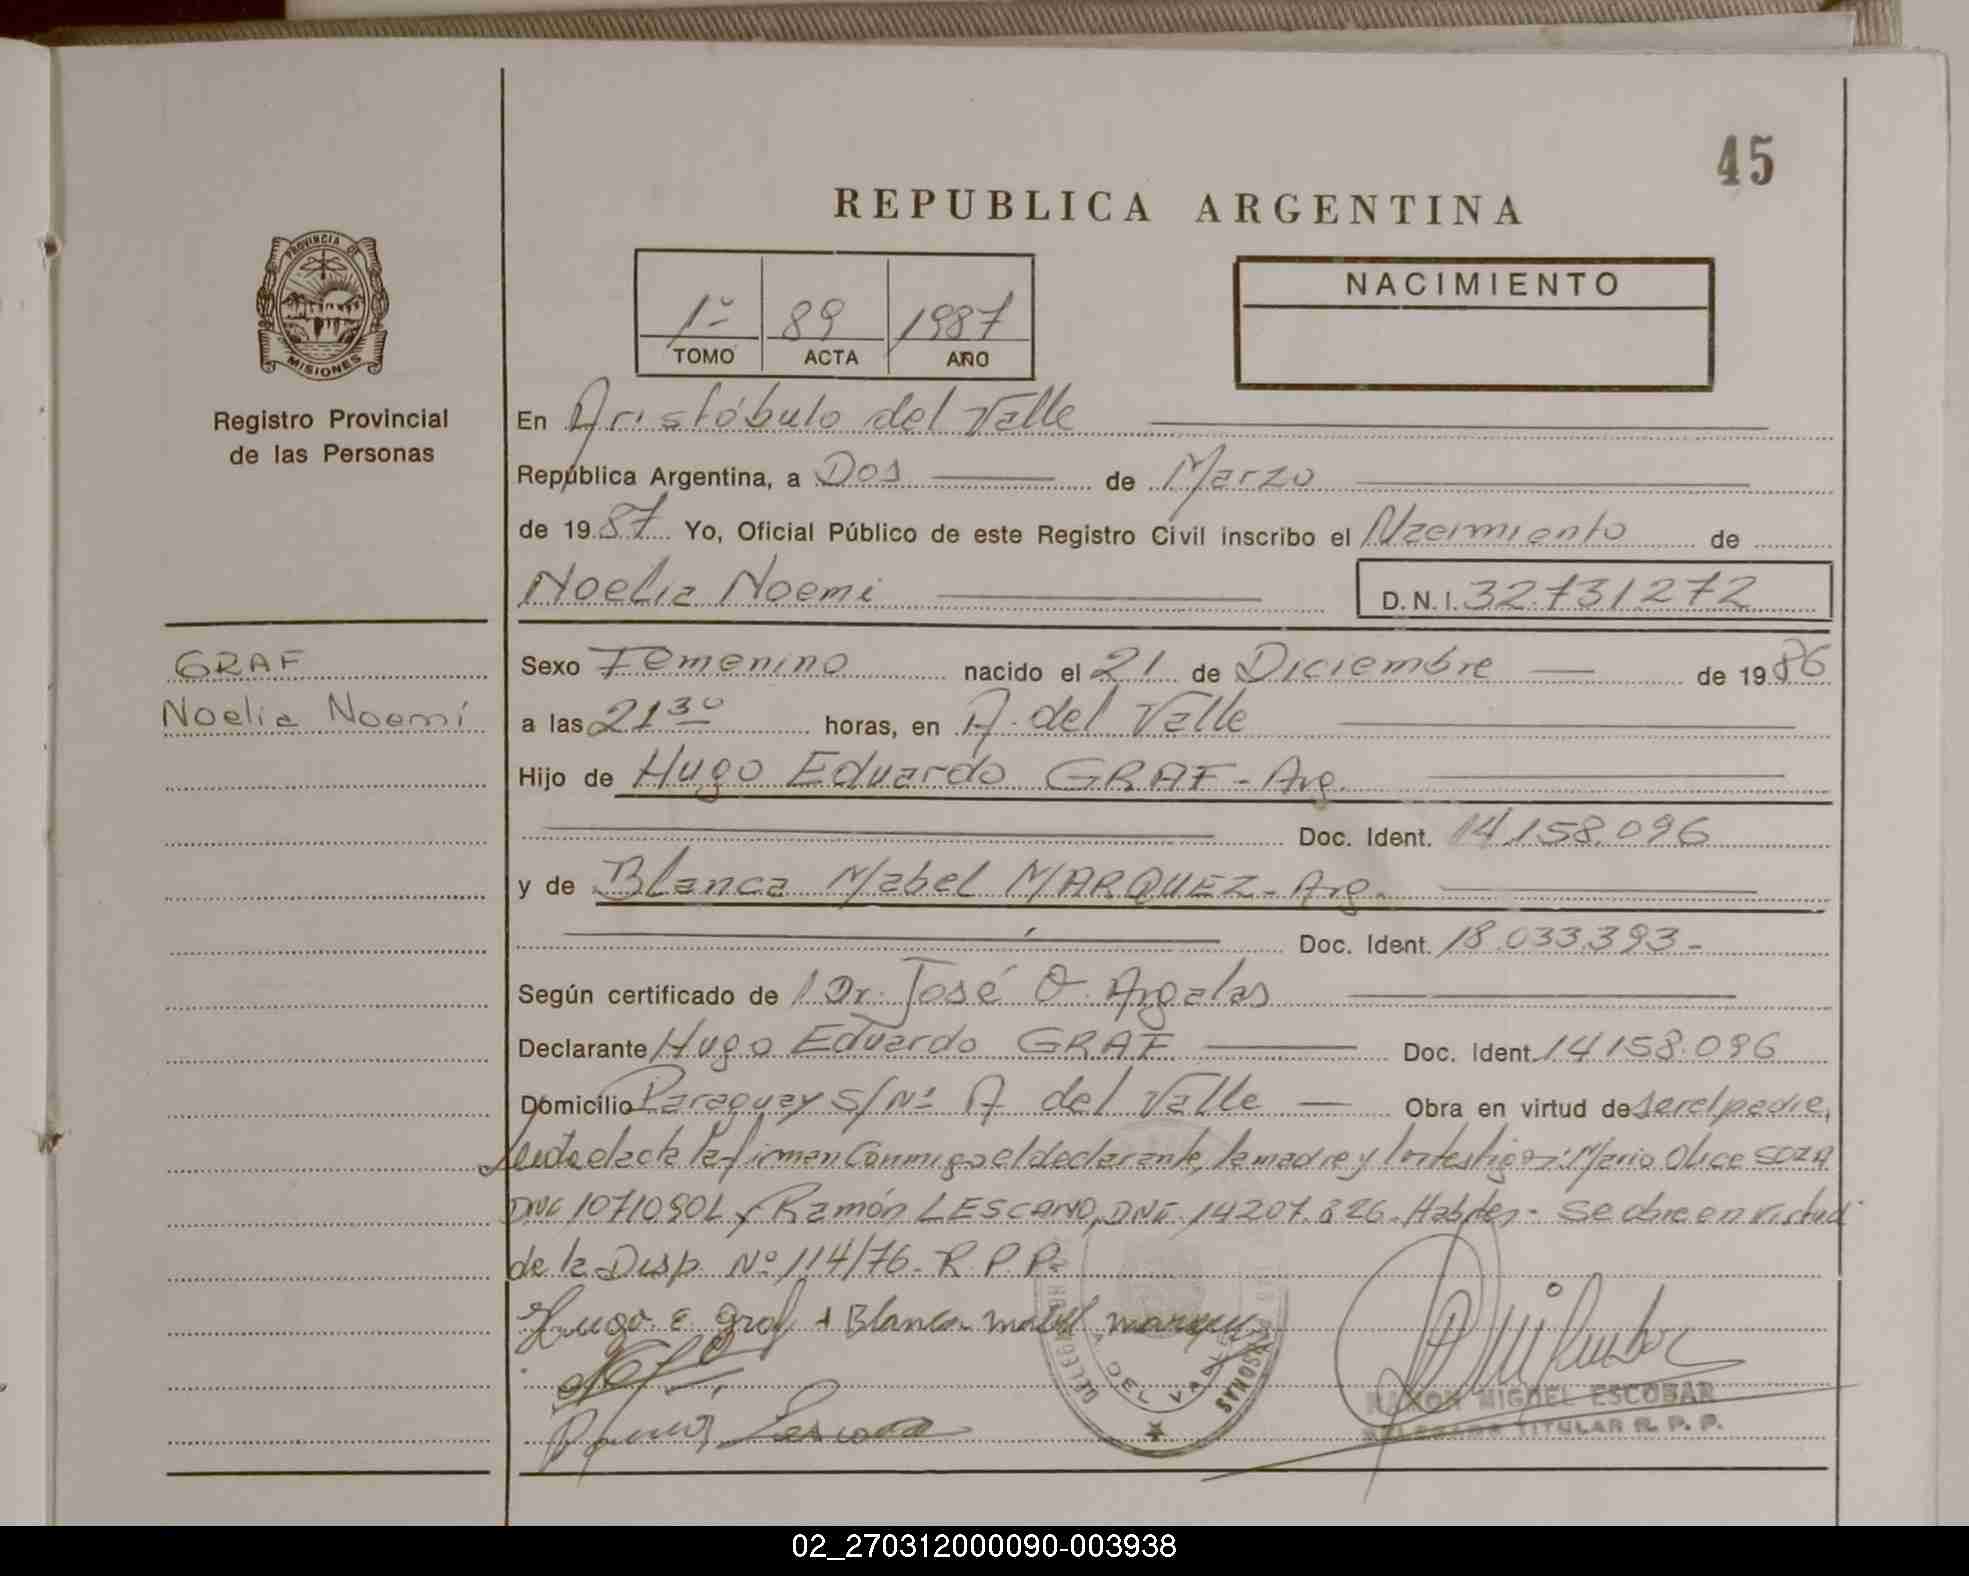 45
REPUBLICA ARGENTINA
PROVINCIA DE
MISIONES
Registro Provincial
de las Personas
1º 89 1987
TOMO ACTA AÑO
NACIMIENTO
En Aristóbulo del Valle
República Argentina, a Dos de Marzo
de 1987 Yo, Oficial Público de este Registro Civil inscribo el Nacimiento de
Noelia Noemi D.N.I. 32.731.272
GRAF
Noelia Noemí
Sexo Femenino nacido el 21 de Diciembre de 1986
a las 21 30 horas, en A. del Valle
Hijo de Hugo Eduardo GRAF - Arg.
Doc. Ident. 14.158.096
y de Blanca Mabel MARQUEZ - Arg.
Doc. Ident. 18.033.393-
Según certificado de Dr. José O. Argalas
Declarante Hugo Eduardo GRAF Doc. Ident. 14158.096
Domicilio Paraguay S/Nº A del Valle Obra en virtud de ser el padre,
el acta la firman conmigo el declarante, la madre y los testigos: Mario SOZA
y Ramón LESCANO, DNI 14207.826. Se obra en virtud
de la Disp. Nº 114/76. R.P.P.
Hugo E Graf + Blanca Mabel Marquez
Ramon Lescano
DEL VALLE
RAMON MIGUEL ESCOBAR
DELEGADO TITULAR R. P. P.
02_270312000090-003938